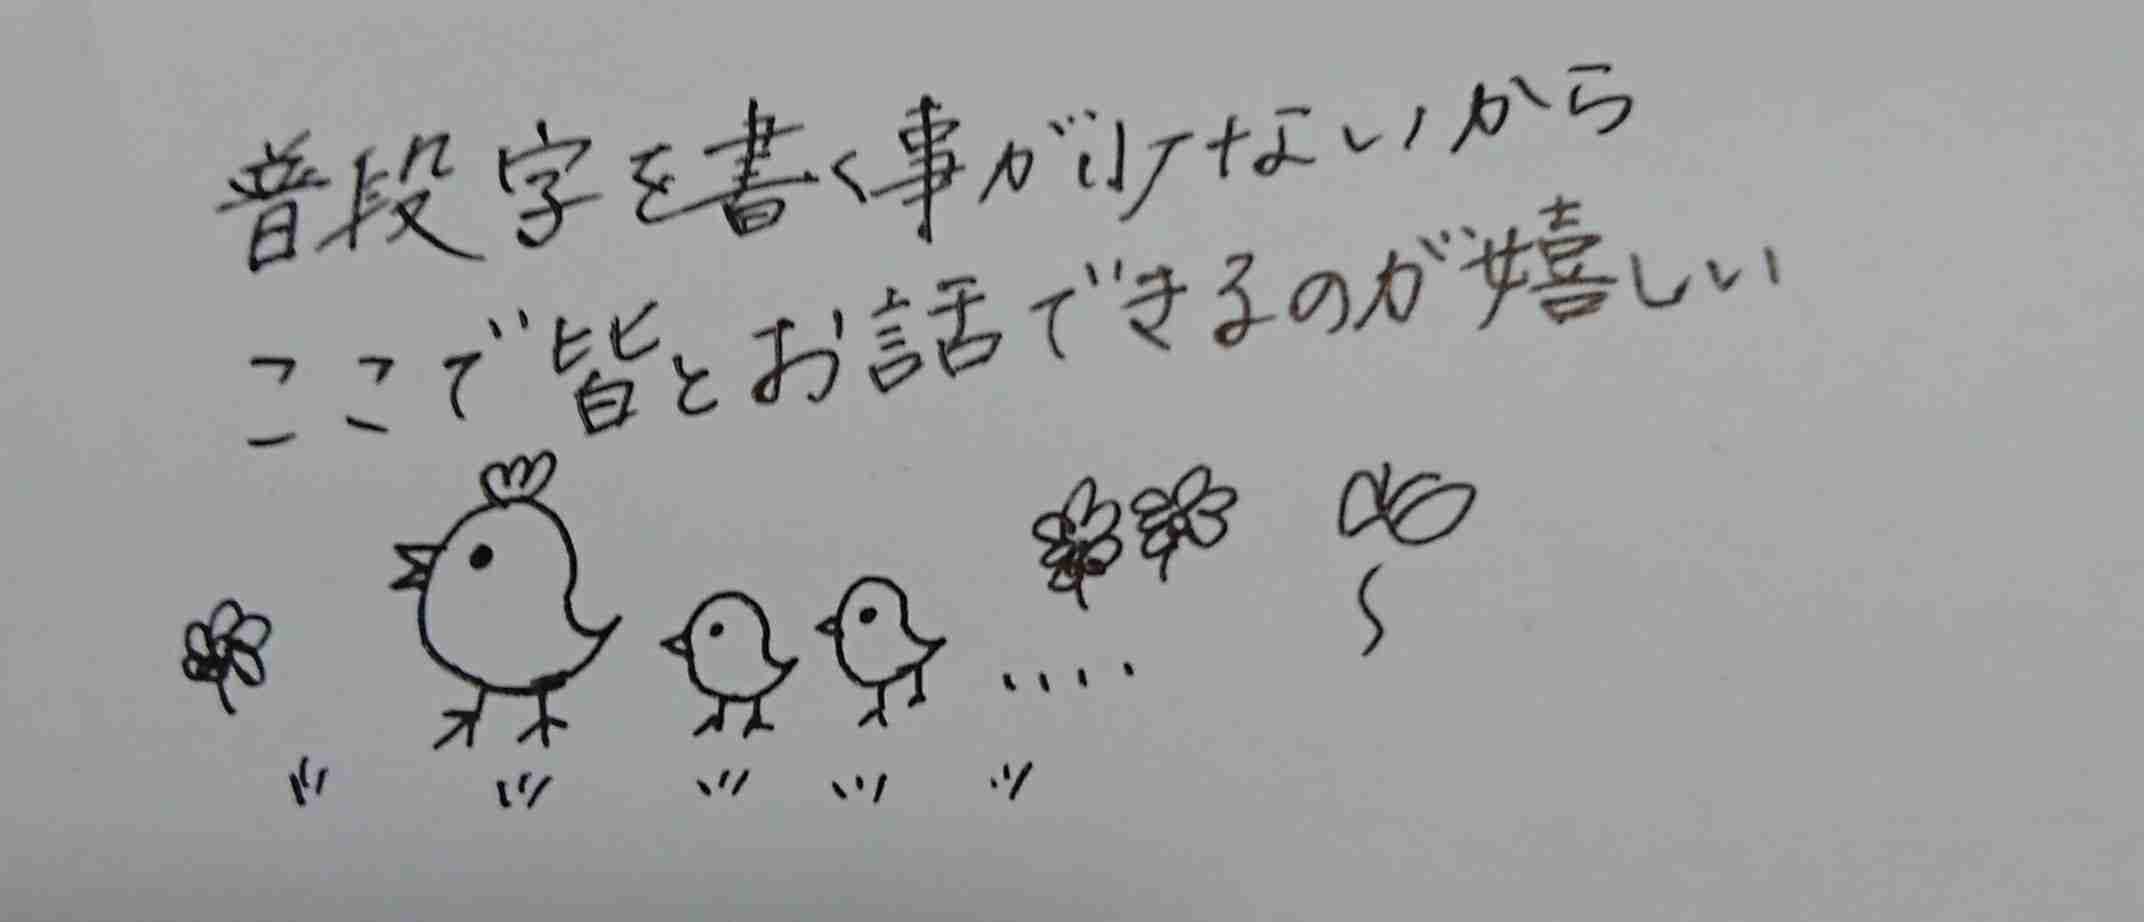 普段字を書く事が少ないから
ここで皆とお話できるのが嬉しい